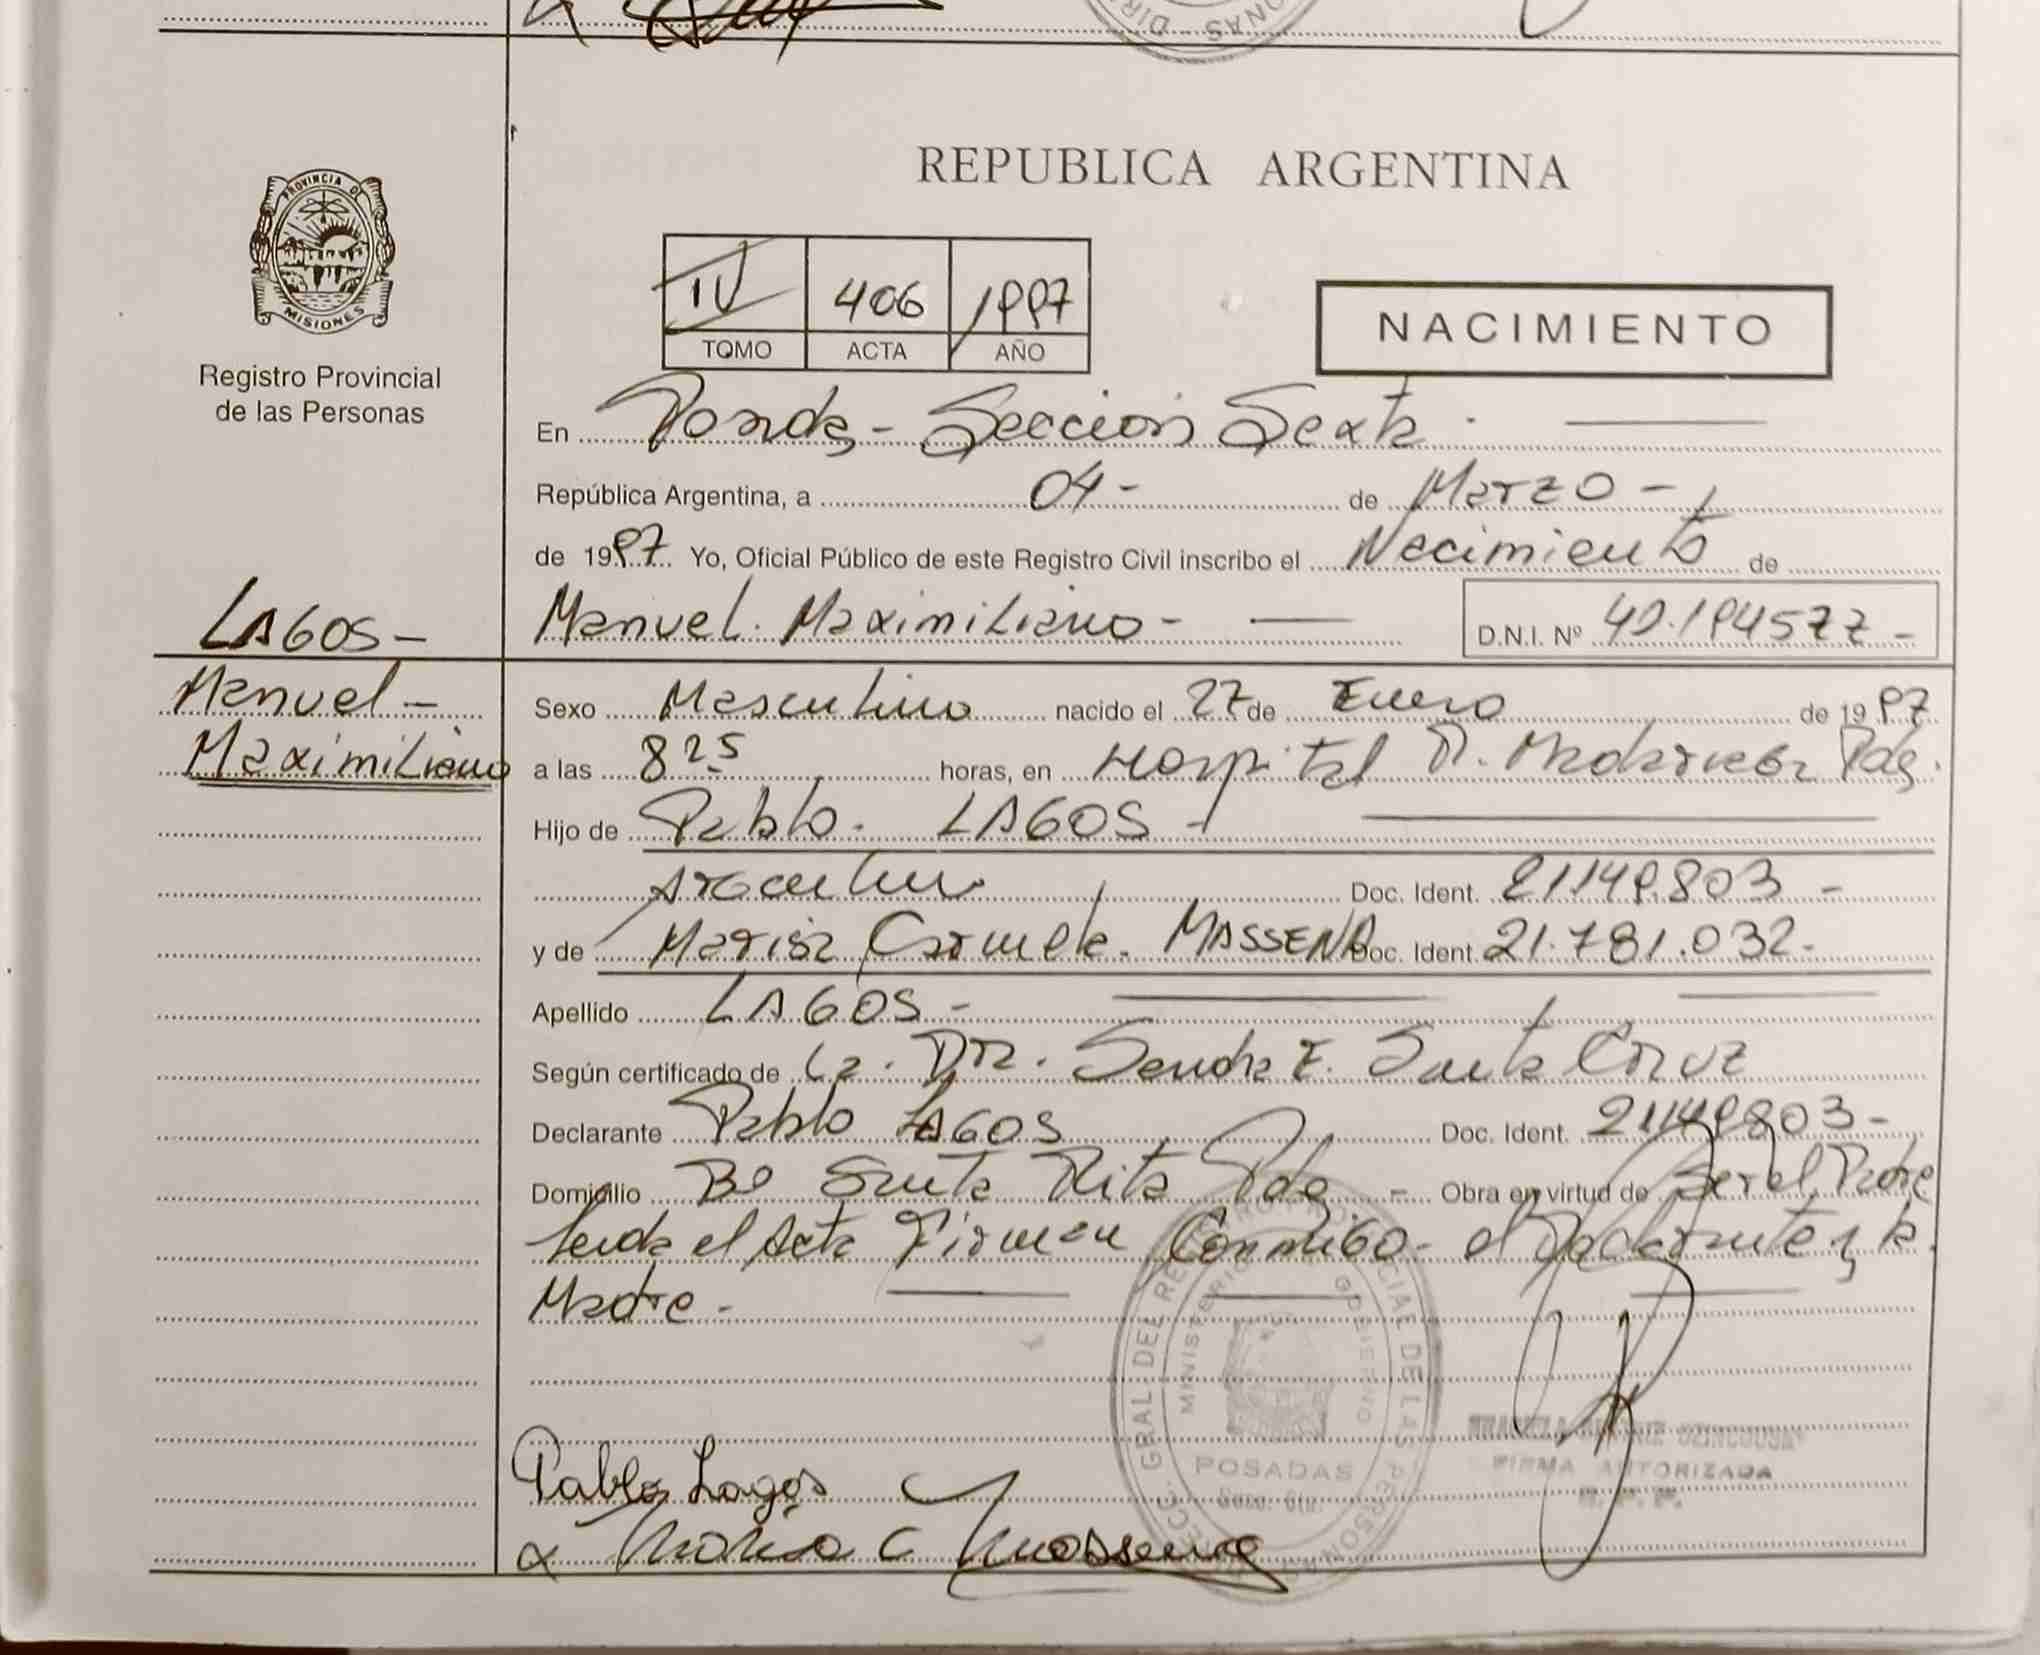 DIR
ONAS
PROVINCIA DE
MISIONES
Registro Provincial
de las Personas
REPUBLICA ARGENTINA
IV 406 1997
TOMO ACTA AÑO
NACIMIENTO
En Posadas - Sección Sexta -
República Argentina, a 04 - de Marzo -
de 1997. Yo, Oficial Público de este Registro Civil inscribo el Nacimiento de
LAGOS -
Manuel. Maximiliano - D.N.I. Nº 40.194577 -
Manuel -
Maximiliano
Sexo Masculino nacido el 27 de Enero de 1997
a las 8 25 horas, en Hospital R. Madariaga Pdas.
Hijo de Pablo. LAGOS -
Argentino Doc. Ident. 21149.803 -
y de María Carmela. MASSENA Doc. Ident. 21.781.032 -
Apellido LAGOS -
Según certificado de La. Dra. Sandra E. Santa Cruz
Declarante Pablo LAGOS Doc. Ident. 21149803 -
Domicilio Bº Santa Rita Pdas - Obra en virtud de Ser el Padre
Leída el Acta Firman Conmigo - el Declarante y la
Madre -
DIRECC. GRAL. DEL REGISTRO PROVINCIAL DE LAS PERSONAS
MINISTERIO GOBIERNO
POSADAS
FIRMA AUTORIZADA
R. P. P.
Pablo Lagos
x María C Massena